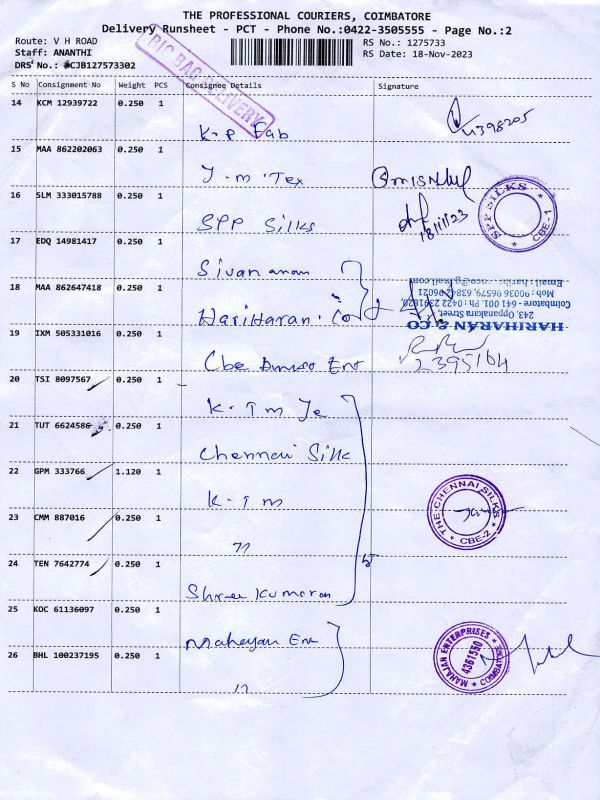 THE PROFESSIONAL COURIERS, COIMBATORE
Delivery Runsheet - PCT - Phone No.:0422-3505555 - Page No.:2
Route: V H ROAD
RS No.: 1275733
Staff: ANANTHI
RS Date: 18-Nov-2023
DRS No.: CJB127573302
BIG BAG DELIVERY
S No Consignment No Weight PCS Consignee Details Signature
14 KCM 12939722 0.250 1
K-P Fab
15 MAA 862202063 0.250 1
J.m.Tex
16 SLM 333015788 0.250 1
SPP Silks
18/11/23
SPP SILKS CBE-1
17 EDQ 14981417 0.250 1
18 MAA 862647418 0.250 1
HariHaran.Co
HARIHARAN & CO
243, Oppanakara Street,
19 IXM 505331016 0.250 1
2395164
20 TSI 8097567 0.250 1
21 TUT 6624586 0.250 1
Chennai Silk
22 GPM 333766 1.120 1
K-T m
THE CHENNAI SILKS CBE-2
23 CMM 887016 0.250 1
24 TEN 7642774 0.250 1
Shree Kumaran
25 KOC 61136097 0.250 1
MAHAJAN ENTERPRISES 4361550 COIMBATORE
26 BHL 100237195 0.250 1